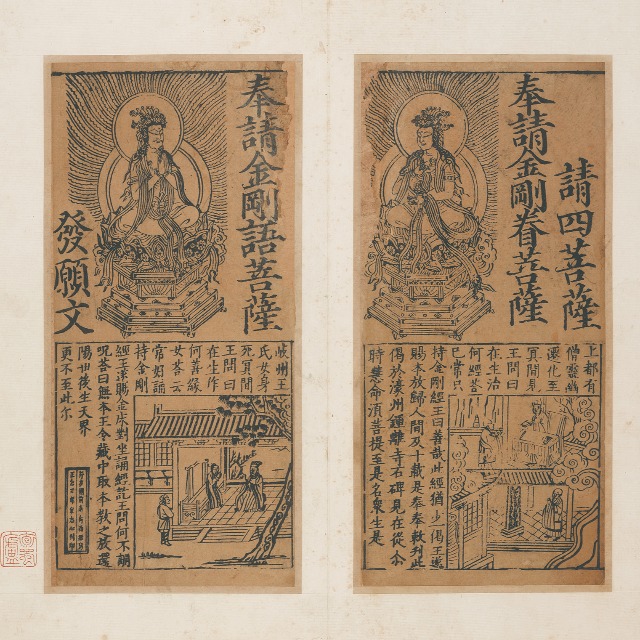 請四菩薩
奉請金剛眷菩薩
上都有
僧靈幽
遷化至
冥間見
王問曰
在生治
何經荅
巳常只
持金剛經王曰善哉此經猶少一偈王遂
賜本放歸人間及十載是奉奉敕刊此
偈於濠州鍾離寺石碑見在從尒
時慧命須菩提至是名衆生是
奉請金剛語菩薩
發願文
岐州王
氏女身
死冥間
王問曰
在生作
何善緣
女荅云
常好誦
持金剛
經王遂賜金床對坐誦經訖王問何不誦
呪荅曰無本王令藏中取本教之放還
陽世後生天界
更不至此尒